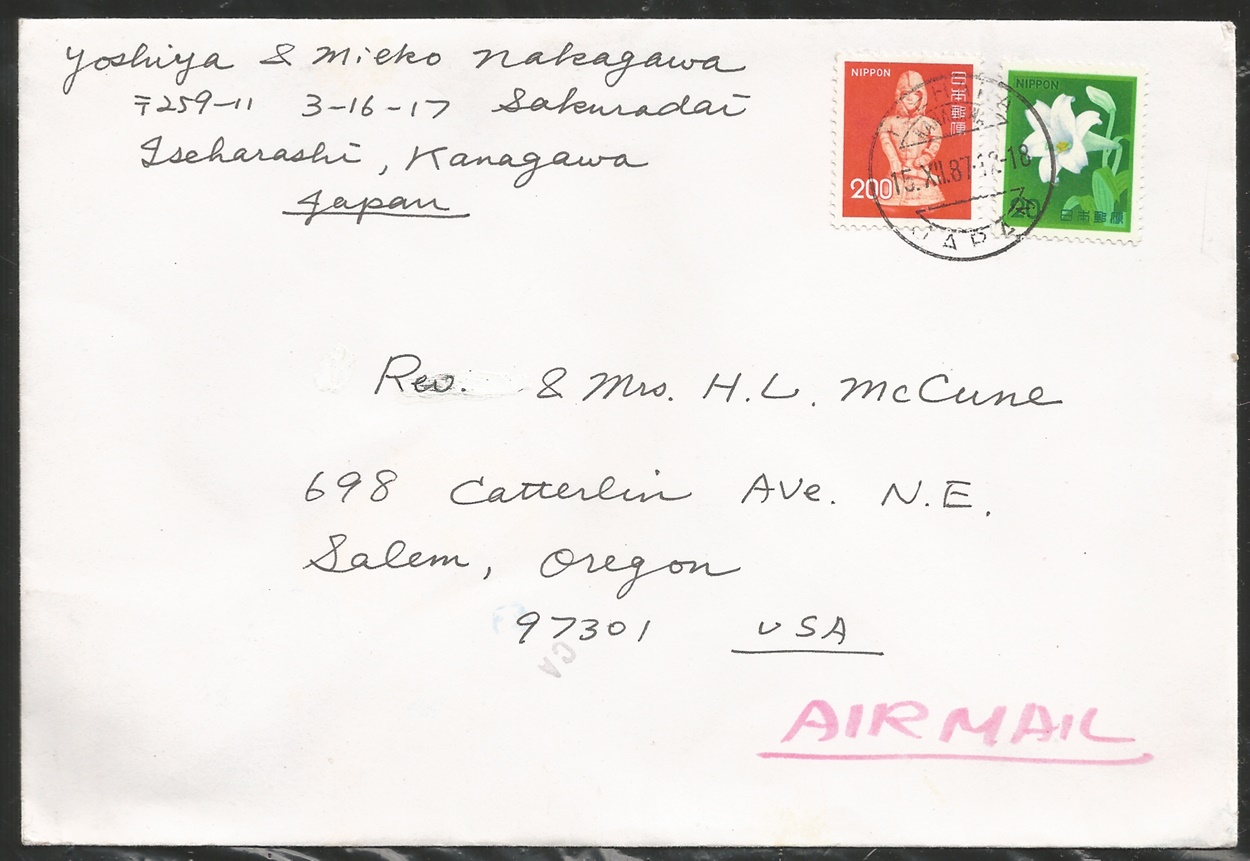 Yoshiya & Mieko Nakagawa
〒259-11 3-16-17 Sakuradai
Iseharashi, Kanagawa
Japan
NIPPON
日本郵便
200
NIPPON
20
日本郵便
15.XII.87.12-18
JAPAN
Rev. & Mrs. H.L. McCune
698 Catterlin Ave. N.E.
Salem, Oregon
97301 USA
AIR MAIL